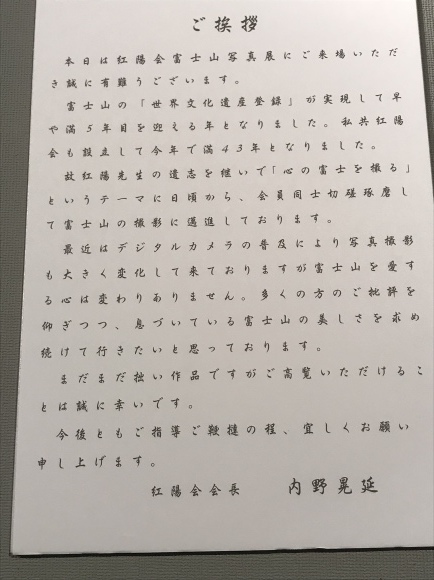 ご挨拶
本日は紅陽会富士山写真展にご来場いただ
き誠に有難うございます。
富士山の「世界文化遺産登録」が実現して早
や満5年目を迎える年となりました。私共紅陽
会も設立して今年で満43年となりました。
故紅陽先生の遺志を継いで「心の富士を撮る」
というテーマに日頃から、会員同士切磋琢磨し
て富士山の撮影に邁進しております。
最近はデジタルカメラの普及により写真撮影
も大きく変化して来ておりますが富士山を愛す
る心は変わりありません。多くの方のご批評を
仰ぎつつ、息づいている富士山の美しさを求め
続けて行きたいと思っております。
まだまだ拙い作品ですがご高覧いただけるこ
とは誠に幸いです。
今後ともご指導ご鞭撻の程、宜しくお願い
申し上げます。
紅陽会会長 内野晃延